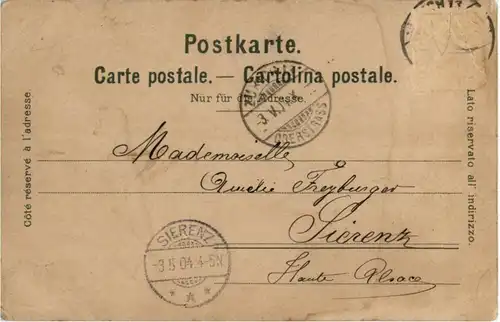 Postkarte.
Carte postale. — Cartolina postale.
Nur für die Adresse.
Côté réservé à l'adresse.
Lato riservato all' indirizzo.
OBERSTRASS
Mademoiselle
Amélie Freyburger
Sierentz
Haute Alsace
SIERENZ
-3.5 04.4-5N